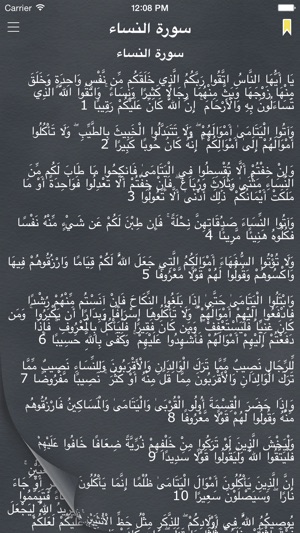 Carrier 12:08 PM
سورة النساء
سورة النساء
يَا أَيُّهَا النَّاسُ اتَّقُوا رَبَّكُمُ الَّذِي خَلَقَكُم مِّن نَّفْسٍ وَاحِدَةٍ وَخَلَقَ
مِنْهَا زَوْجَهَا وَبَثَّ مِنْهُمَا رِجَالًا كَثِيرًا وَنِسَاءً ۚ وَاتَّقُوا اللَّهَ الَّذِي
تَسَاءَلُونَ بِهِ وَالْأَرْحَامَ ۚ إِنَّ اللَّهَ كَانَ عَلَيْكُمْ رَقِيبًا 1
وَآتُوا الْيَتَامَىٰ أَمْوَالَهُمْ ۖ وَلَا تَتَبَدَّلُوا الْخَبِيثَ بِالطَّيِّبِ ۖ وَلَا تَأْكُلُوا
أَمْوَالَهُمْ إِلَىٰ أَمْوَالِكُمْ ۚ إِنَّهُ كَانَ حُوبًا كَبِيرًا 2
وَإِنْ خِفْتُمْ أَلَّا تُقْسِطُوا فِي الْيَتَامَىٰ فَانكِحُوا مَا طَابَ لَكُم مِّنَ
النِّسَاءِ مَثْنَىٰ وَثُلَاثَ وَرُبَاعَ ۖ فَإِنْ خِفْتُمْ أَلَّا تَعْدِلُوا فَوَاحِدَةً أَوْ مَا
مَلَكَتْ أَيْمَانُكُمْ ۚ ذَٰلِكَ أَدْنَىٰ أَلَّا تَعُولُوا 3
وَآتُوا النِّسَاءَ صَدُقَاتِهِنَّ نِحْلَةً ۚ فَإِن طِبْنَ لَكُمْ عَن شَيْءٍ مِّنْهُ نَفْسًا
فَكُلُوهُ هَنِيئًا مَّرِيئًا 4
وَلَا تُؤْتُوا السُّفَهَاءَ أَمْوَالَكُمُ الَّتِي جَعَلَ اللَّهُ لَكُمْ قِيَامًا وَارْزُقُوهُمْ فِيهَا
وَاكْسُوهُمْ وَقُولُوا لَهُمْ قَوْلًا مَّعْرُوفًا 5
وَابْتَلُوا الْيَتَامَىٰ حَتَّىٰ إِذَا بَلَغُوا النِّكَاحَ فَإِنْ آنَسْتُم مِّنْهُمْ رُشْدًا
فَادْفَعُوا إِلَيْهِمْ أَمْوَالَهُمْ ۖ وَلَا تَأْكُلُوهَا إِسْرَافًا وَبِدَارًا أَن يَكْبَرُوا ۚ وَمَن
كَانَ غَنِيًّا فَلْيَسْتَعْفِفْ ۖ وَمَن كَانَ فَقِيرًا فَلْيَأْكُلْ بِالْمَعْرُوفِ ۚ فَإِذَا
دَفَعْتُمْ إِلَيْهِمْ أَمْوَالَهُمْ فَأَشْهِدُوا عَلَيْهِمْ ۚ وَكَفَىٰ بِاللَّهِ حَسِيبًا 6
لِّلرِّجَالِ نَصِيبٌ مِّمَّا تَرَكَ الْوَالِدَانِ وَالْأَقْرَبُونَ وَلِلنِّسَاءِ نَصِيبٌ مِّمَّا
تَرَكَ الْوَالِدَانِ وَالْأَقْرَبُونَ مِمَّا قَلَّ مِنْهُ أَوْ كَثُرَ ۚ نَصِيبًا مَّفْرُوضًا 7
وَإِذَا حَضَرَ الْقِسْمَةَ أُولُو الْقُرْبَىٰ وَالْيَتَامَىٰ وَالْمَسَاكِينُ فَارْزُقُوهُم
مِّنْهُ وَقُولُوا لَهُمْ قَوْلًا مَّعْرُوفًا 8
وَلْيَخْشَ الَّذِينَ لَوْ تَرَكُوا مِنْ خَلْفِهِمْ ذُرِّيَّةً ضِعَافًا خَافُوا عَلَيْهِمْ
فَلْيَتَّقُوا اللَّهَ وَلْيَقُولُوا قَوْلًا سَدِيدًا 9
إِنَّ الَّذِينَ يَأْكُلُونَ أَمْوَالَ الْيَتَامَىٰ ظُلْمًا إِنَّمَا يَأْكُلُونَ
نَارًا ۖ وَسَيَصْلَوْنَ سَعِيرًا 10
يُوصِيكُمُ اللَّهُ فِي أَوْلَادِكُمْ ۖ لِلذَّكَرِ مِثْلُ حَظِّ الْأُنثَيَيْنِ